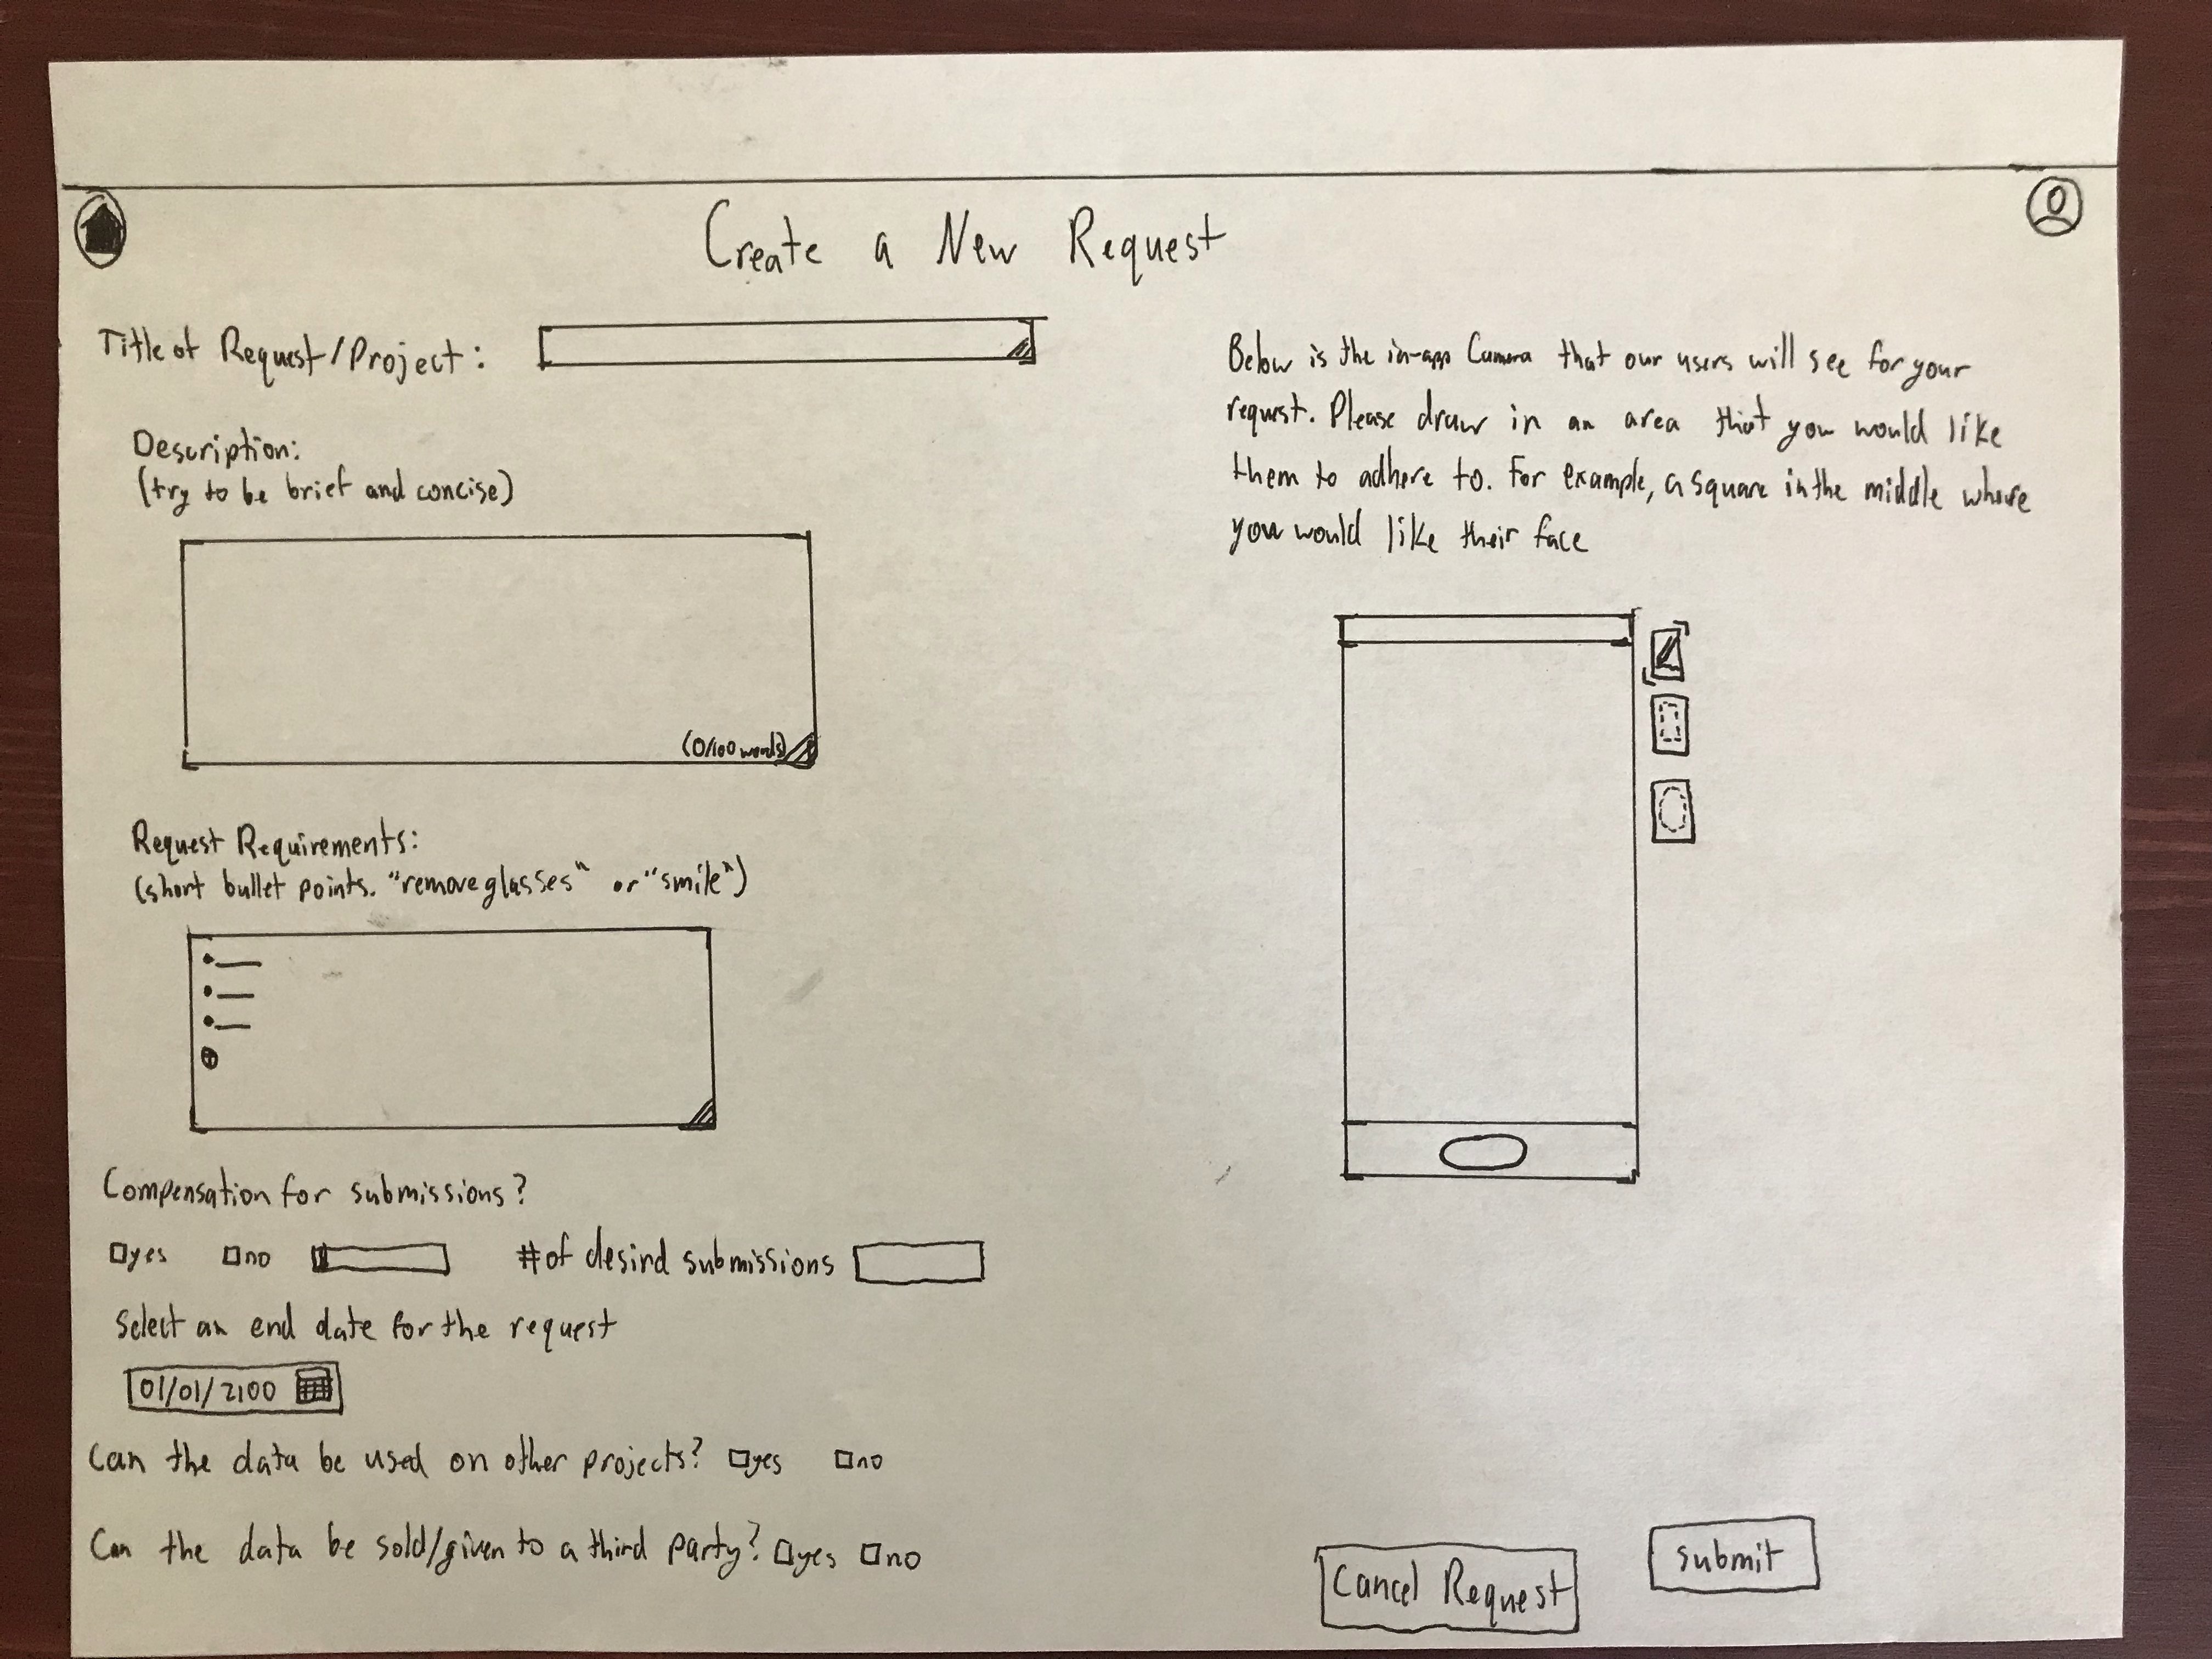 Create a New Request
Title of Request/Project:
Description:
(try to be brief and concise)
(0/100 words)
Request Requirements:
(short bullet points. "remove glasses" or "smile")
Compensation for submissions?
yes no # of desird submissions
Select an end date for the request
01/01/2100
Can the data be used on other projects? yes no
Can the data be sold/given to a third party? yes no
Below is the in-app Camera that our users will see for your
request. Please draw in an area that you would like
them to adhere to. For example, a square in the middle where
you would like their face
Cancel Request
submit